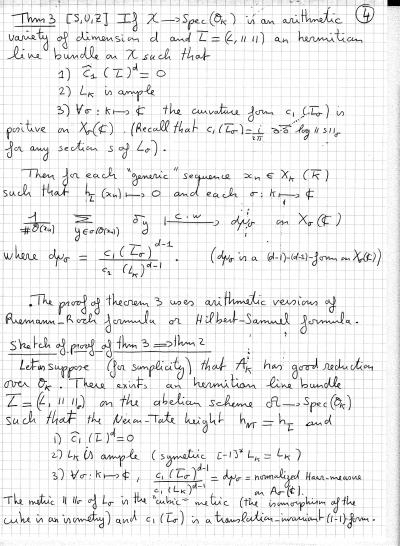 ④
Thm 3 [S,U,Z] If 𝒳 → Spec(O_K) is an arithmetic
variety of dimension d and L̄ = (L, ‖ ‖) an hermitian
line bundle on 𝒳 such that
1) ĉ₁(L̄)^d = 0
2) L_K is ample
3) ∀σ: K ↪ ℂ the curvature form c₁(L̄_σ) is
positive on X_σ(ℂ). (Recall that c₁(L̄_σ) = i/2π ∂∂̄ log ‖s‖_σ
for any section s of L_σ).
Then for each "generic" sequence x_n ∈ X_K(K̄)
such that h_L̄(x_n) → 0 and each σ: K ↪ ℂ
1/#O(x_n) Σ_{y∈σ(O(x_n))} δ_y —c.w→ dμ_σ on X_σ(ℂ)
where dμ_σ = c₁(L̄_σ)^{d-1} / c₁(L_K)^{d-1}. (dμ_σ is a (d-1)-(d-1)-form on X_σ(ℂ))
. The proof of theorem 3 uses arithmetic versions of
Riemann-Roch formula or Hilbert-Samuel formula.
Sketch of proof of thm 3 ⟹ thm 2
Let us suppose (for simplicity) that A_K has good reduction
over O_K. There exists an hermitian line bundle
L̄ = (L, ‖ ‖_σ) on the abelian scheme 𝒜 → Spec(O_K)
such that the Neron-Tate height h_NT = h_L̄ and
1) ĉ₁(L̄)^d = 0
2) L_K is ample (symetric [-1]* L_K = L_K)
3) ∀σ: K ↪ ℂ, c₁(L̄_σ)^{d-1} / c₁(L_K)^{d-1} = dμ_σ = normalized Haar-measure
on A_σ(ℂ).
The metric ‖ ‖_σ of L_σ is the "cubic" metric (the isomorphism of the
cube is an isometry) and c₁(L̄_σ) is a translation-invariant (1-1)-form.